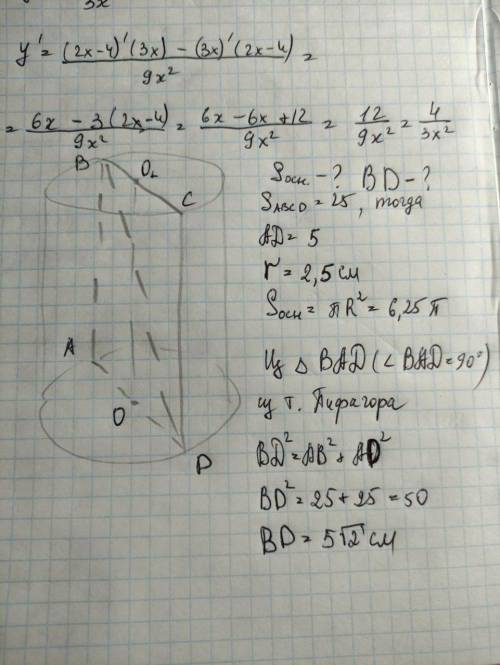 3x
y' = (2x-4)'(3x) - (3x)'(2x-4) / 9x² =
= 6x - 3(2x-4) / 9x² = 6x - 6x + 12 / 9x² = 12 / 9x² = 4 / 3x²
B O₁ C
A
O
D
Sосн - ? BD - ?
SABCD = 25, тогда
AD = 5
r = 2,5 см
Sосн = πR² = 6,25π
Из △ BAD (∠ BAD = 90°)
из т. Пифагора
BD² = AB² + AD²
BD² = 25 + 25 = 50
BD = 5√2 см